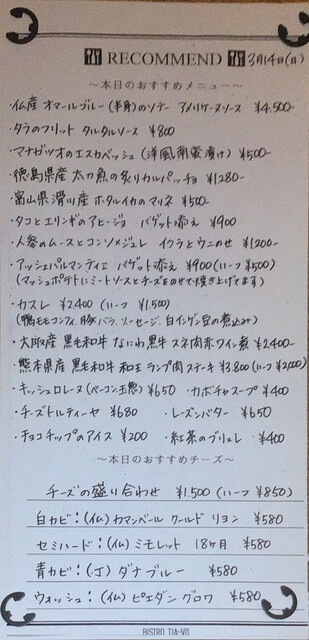 RECOMMEND 3月14日(日)
～本日のおすすめメニュー～
・仏産 オマールブルー(半身)のソテー アメリケーヌソース ¥4,500-
・タラのフリット タルタルソース ¥800
・マナガツオのエスカベッシュ (洋風南蛮漬け) ¥500-
・徳島県産 太刀魚の炙りカルパッチョ ¥1280-
・富山県滑川産 ホタルイカのマリネ ¥500-
・タコとエリンギのアヒージョ バゲット添え ¥900
・人参のムースとコンソメジュレ イクラとウニのせ ¥1200-
・アッシェパルマンティエ バゲット添え ¥900 (ハーフ ¥500)
(マッシュポテトにミートソースとチーズをのせて焼き上げてます)
・カスレ ¥2400 (ハーフ ¥1,500)
(鴨モモコンフィ、豚バラ、ソーセージ、白インゲン豆の煮込み)
・大阪産 黒毛和牛 なにわ黒牛 スネ肉赤ワイン煮 ¥2,400-
・熊本県産 黒毛和牛 和王 ランプ肉ステーキ ¥3,800 (ハーフ ¥2,000)
・キッシュロレーヌ (ベーコン玉葱) ¥650 ・カボチャスープ ¥400
・チーズトルティーヤ ¥680 ・レーズンバター ¥650
・チョコチップのアイス ¥200 ・紅茶のブリュレ ¥400
～本日のおすすめチーズ～
チーズの盛り合わせ ¥1,500 (ハーフ ¥850)
白カビ:(仏)カマンベール クールド リヨン ¥580
セミハード:(仏)ミモレット 18ヶ月 ¥580
青カビ:(丁)ダナブルー ¥580
ウォッシュ:(仏)ピエダングロワ ¥580
BISTRO TIA-VO